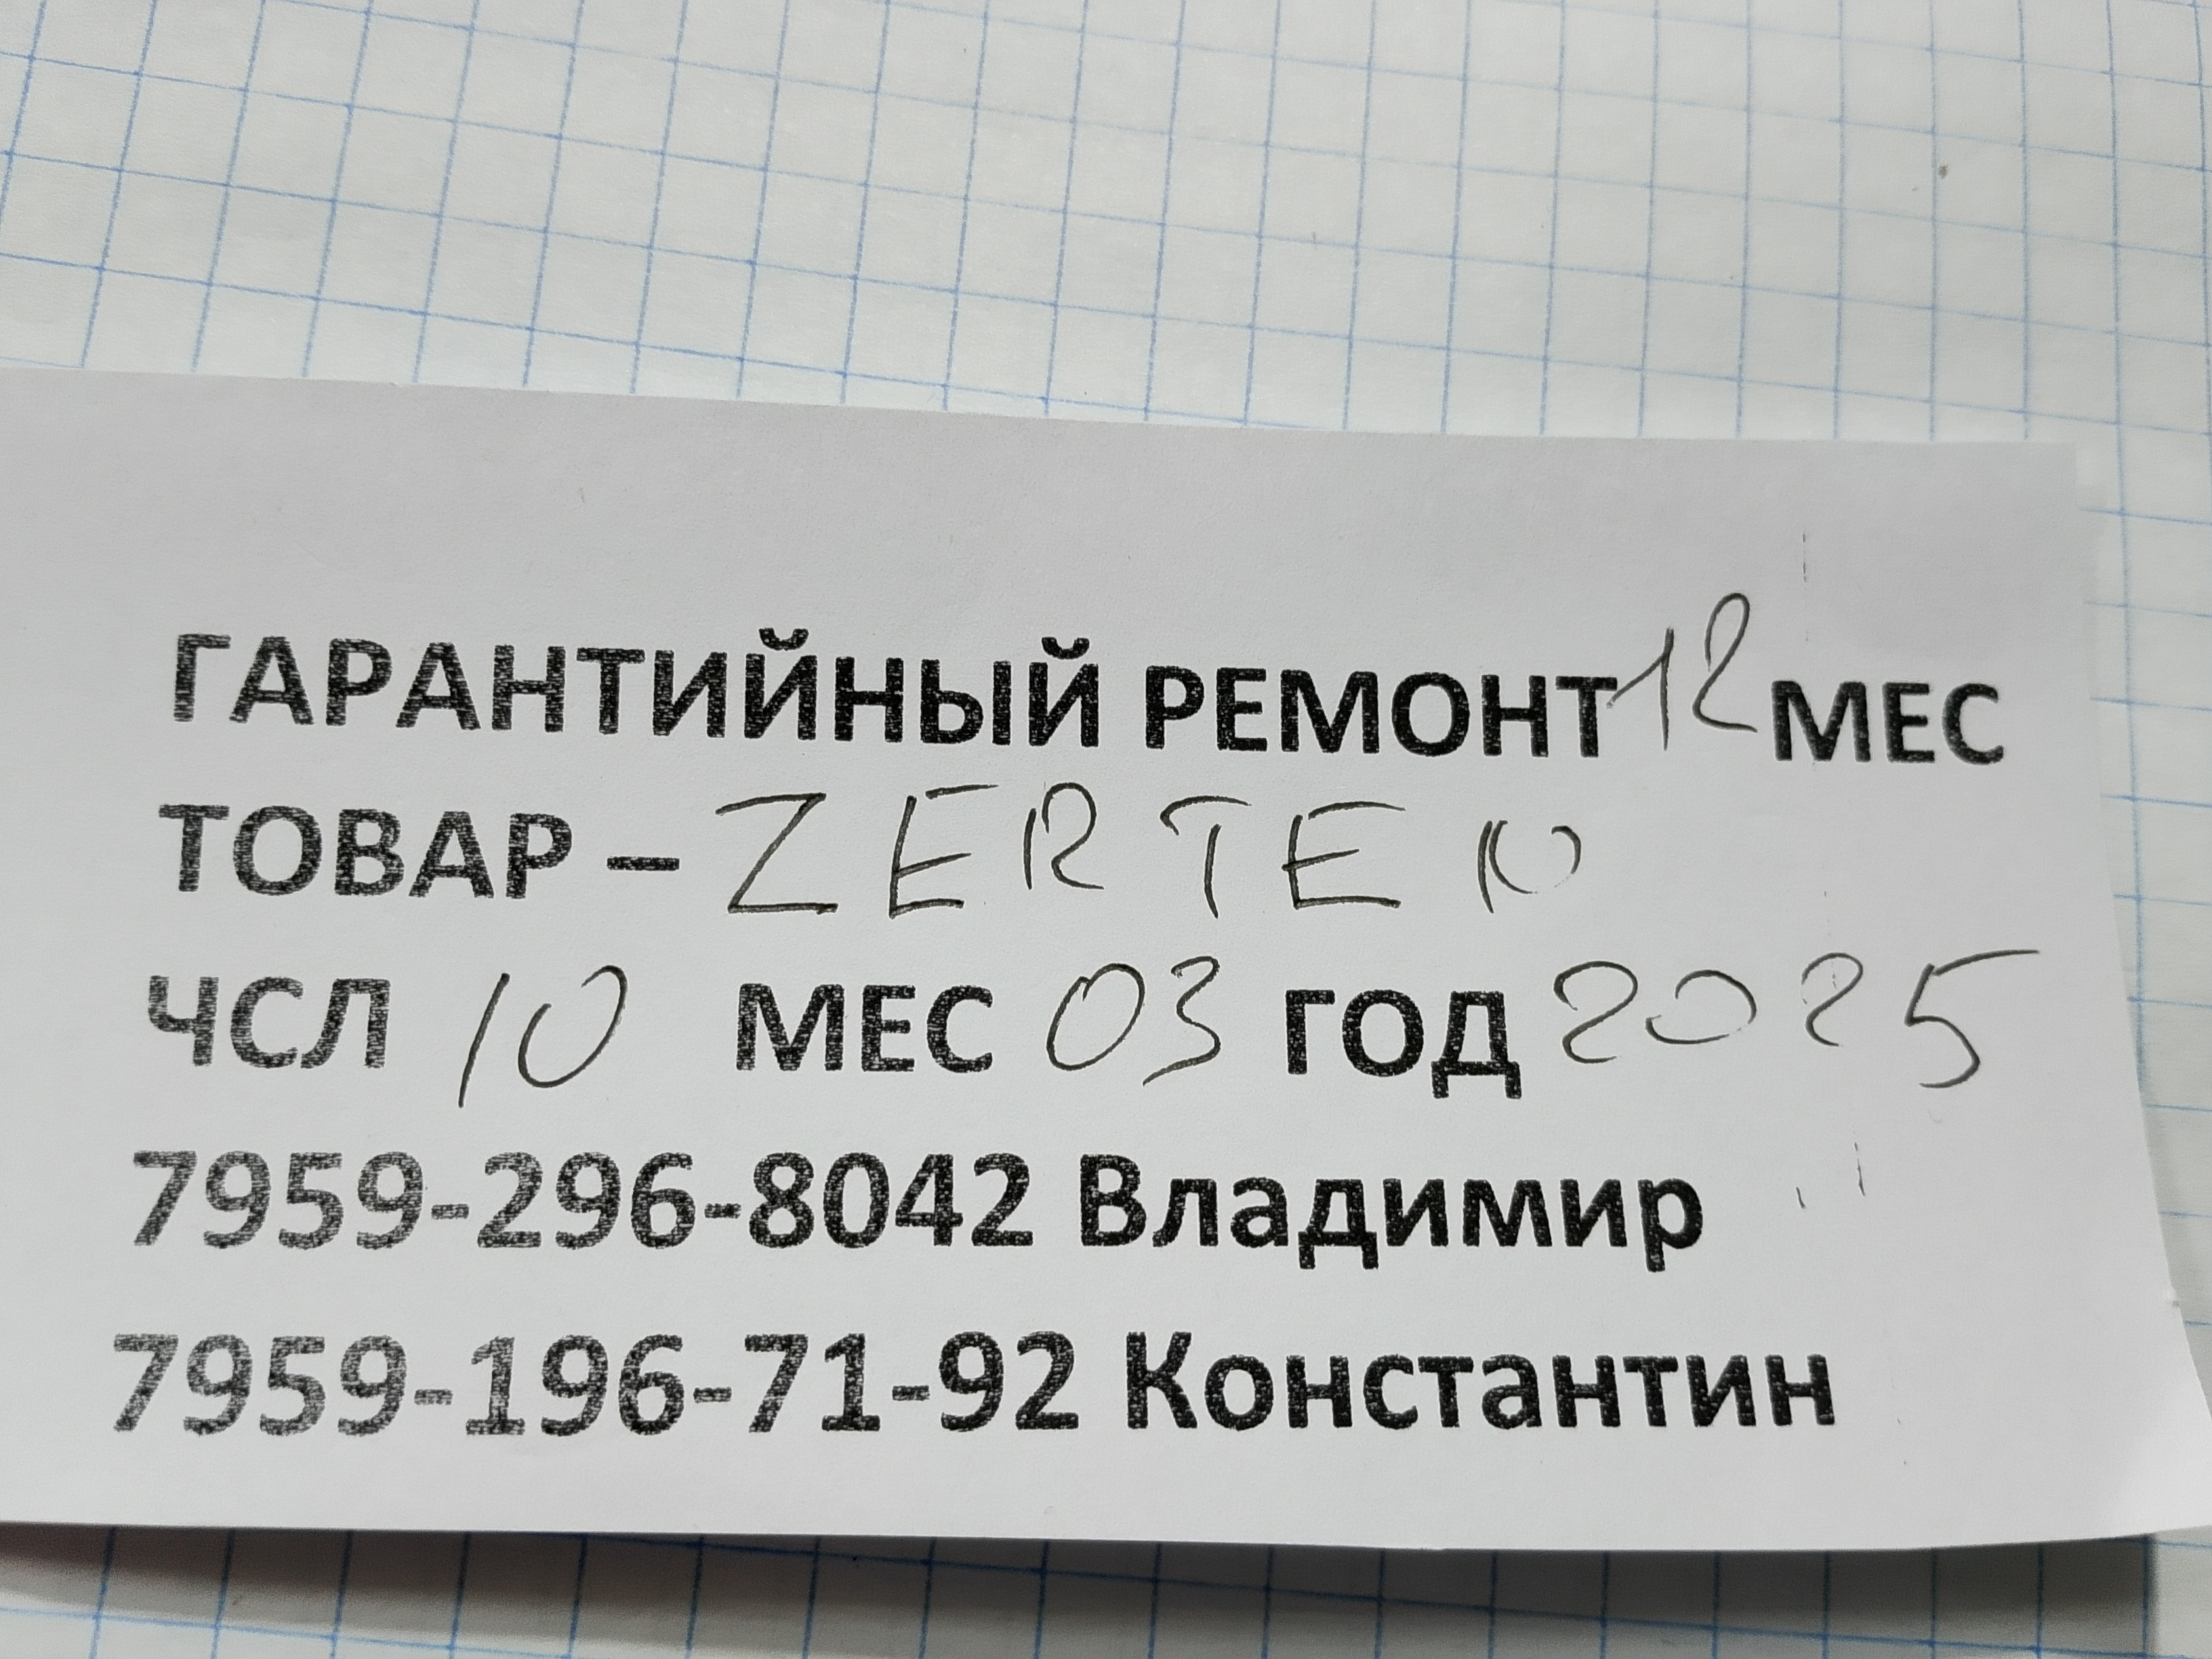 ГАРАНТИЙНЫЙ РЕМОНТ 12 МЕС
ТОВАР – ZERTE 10
ЧСЛ 10 МЕС 03 ГОД 2025
7959-296-8042 Владимир
7959-196-71-92 Константин